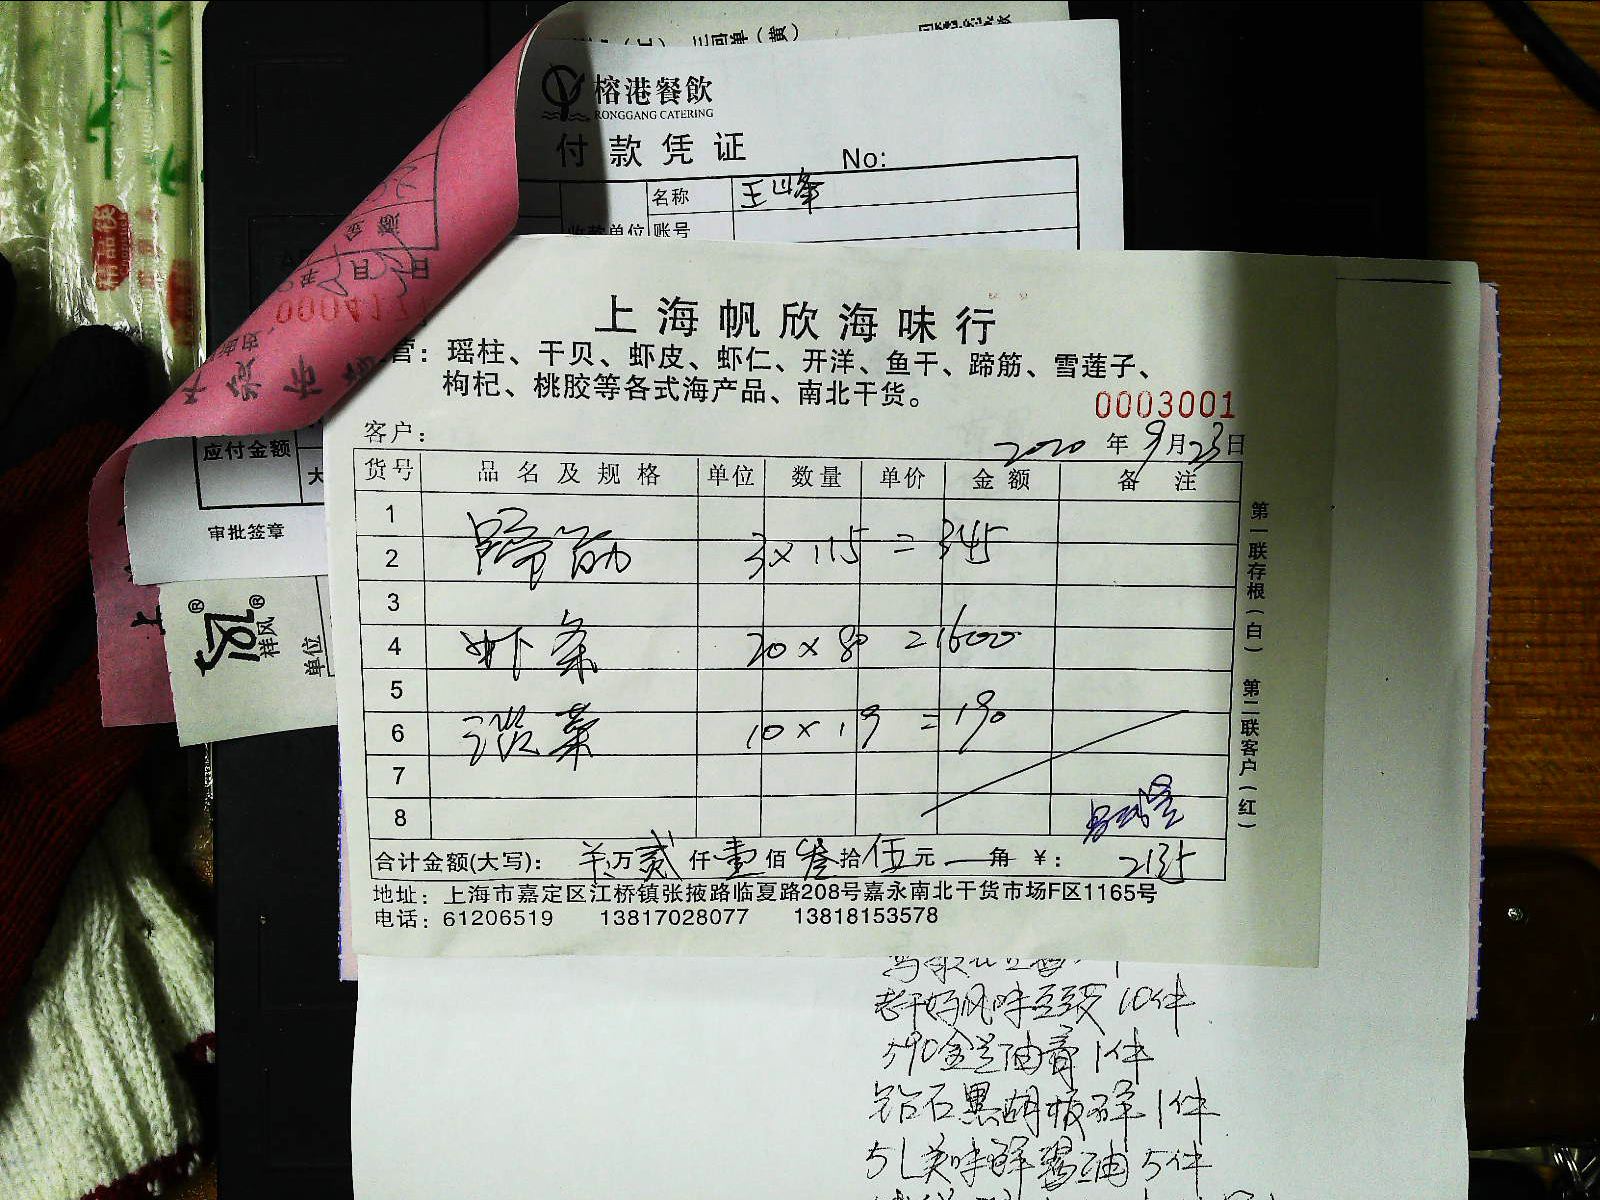 榕港餐飲
RONGGANG CATERING
付款凭证
No:
名称 王峰
收款单位 账号
上海帆欣海味行
营：瑶柱、干贝、虾皮、虾仁、开洋、鱼干、蹄筋、雪莲子、
枸杞、桃胶等各式海产品、南北干货。
0003001
客户： 2020年9月23日
货号 品名及规格 单位 数量 单价 金额 备注
1
2 蹄筋 3×115=345
3
4 虾条 20×80=1600
5
6 10×19=190
7
8
合计金额(大写)： 万贰仟壹佰叁拾伍元一角 ¥： 2135
地址：上海市嘉定区江桥镇张掖路临夏路208号嘉永南北干货市场F区1165号
电话：61206519 13817028077 13818153578
第一联存根(白) 第二联客户(红)
应付金额
大
审批签章
祥风
单位
精品筷
年月日
金
00041
老干妈风味豆豉 10件
590金兰油膏 1件
钻石黑胡椒碎 1件
5L美味鲜酱油 5件